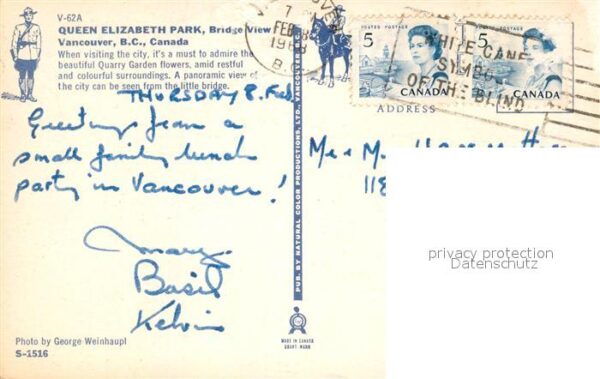 V-62A
QUEEN ELIZABETH PARK, Bridge View
Vancouver, B.C., Canada
When visiting the city, it's a must to admire the
beautiful Quarry Garden flowers, amid restful
and colourful surroundings. A panoramic view of
the city can be seen from the little bridge.
THURSDAY 8. Feb.
Greetings from a
small family lunch
party in Vancouver!
Mary
Basil
Kelvin
Photo by George Weinhaupl
S-1516
PUB. BY NATURAL COLOR PRODUCTIONS, LTD., VANCOUVER
MADE IN CANADA
7
FEB
1968
B.C.
POSTES POSTAGE
5
CANADA
POSTES POSTAGE
5
CANADA
WHITE CANE
SYMBOL
OF THE BLIND
ADDRESS
118
privacy protection
Datenschutz